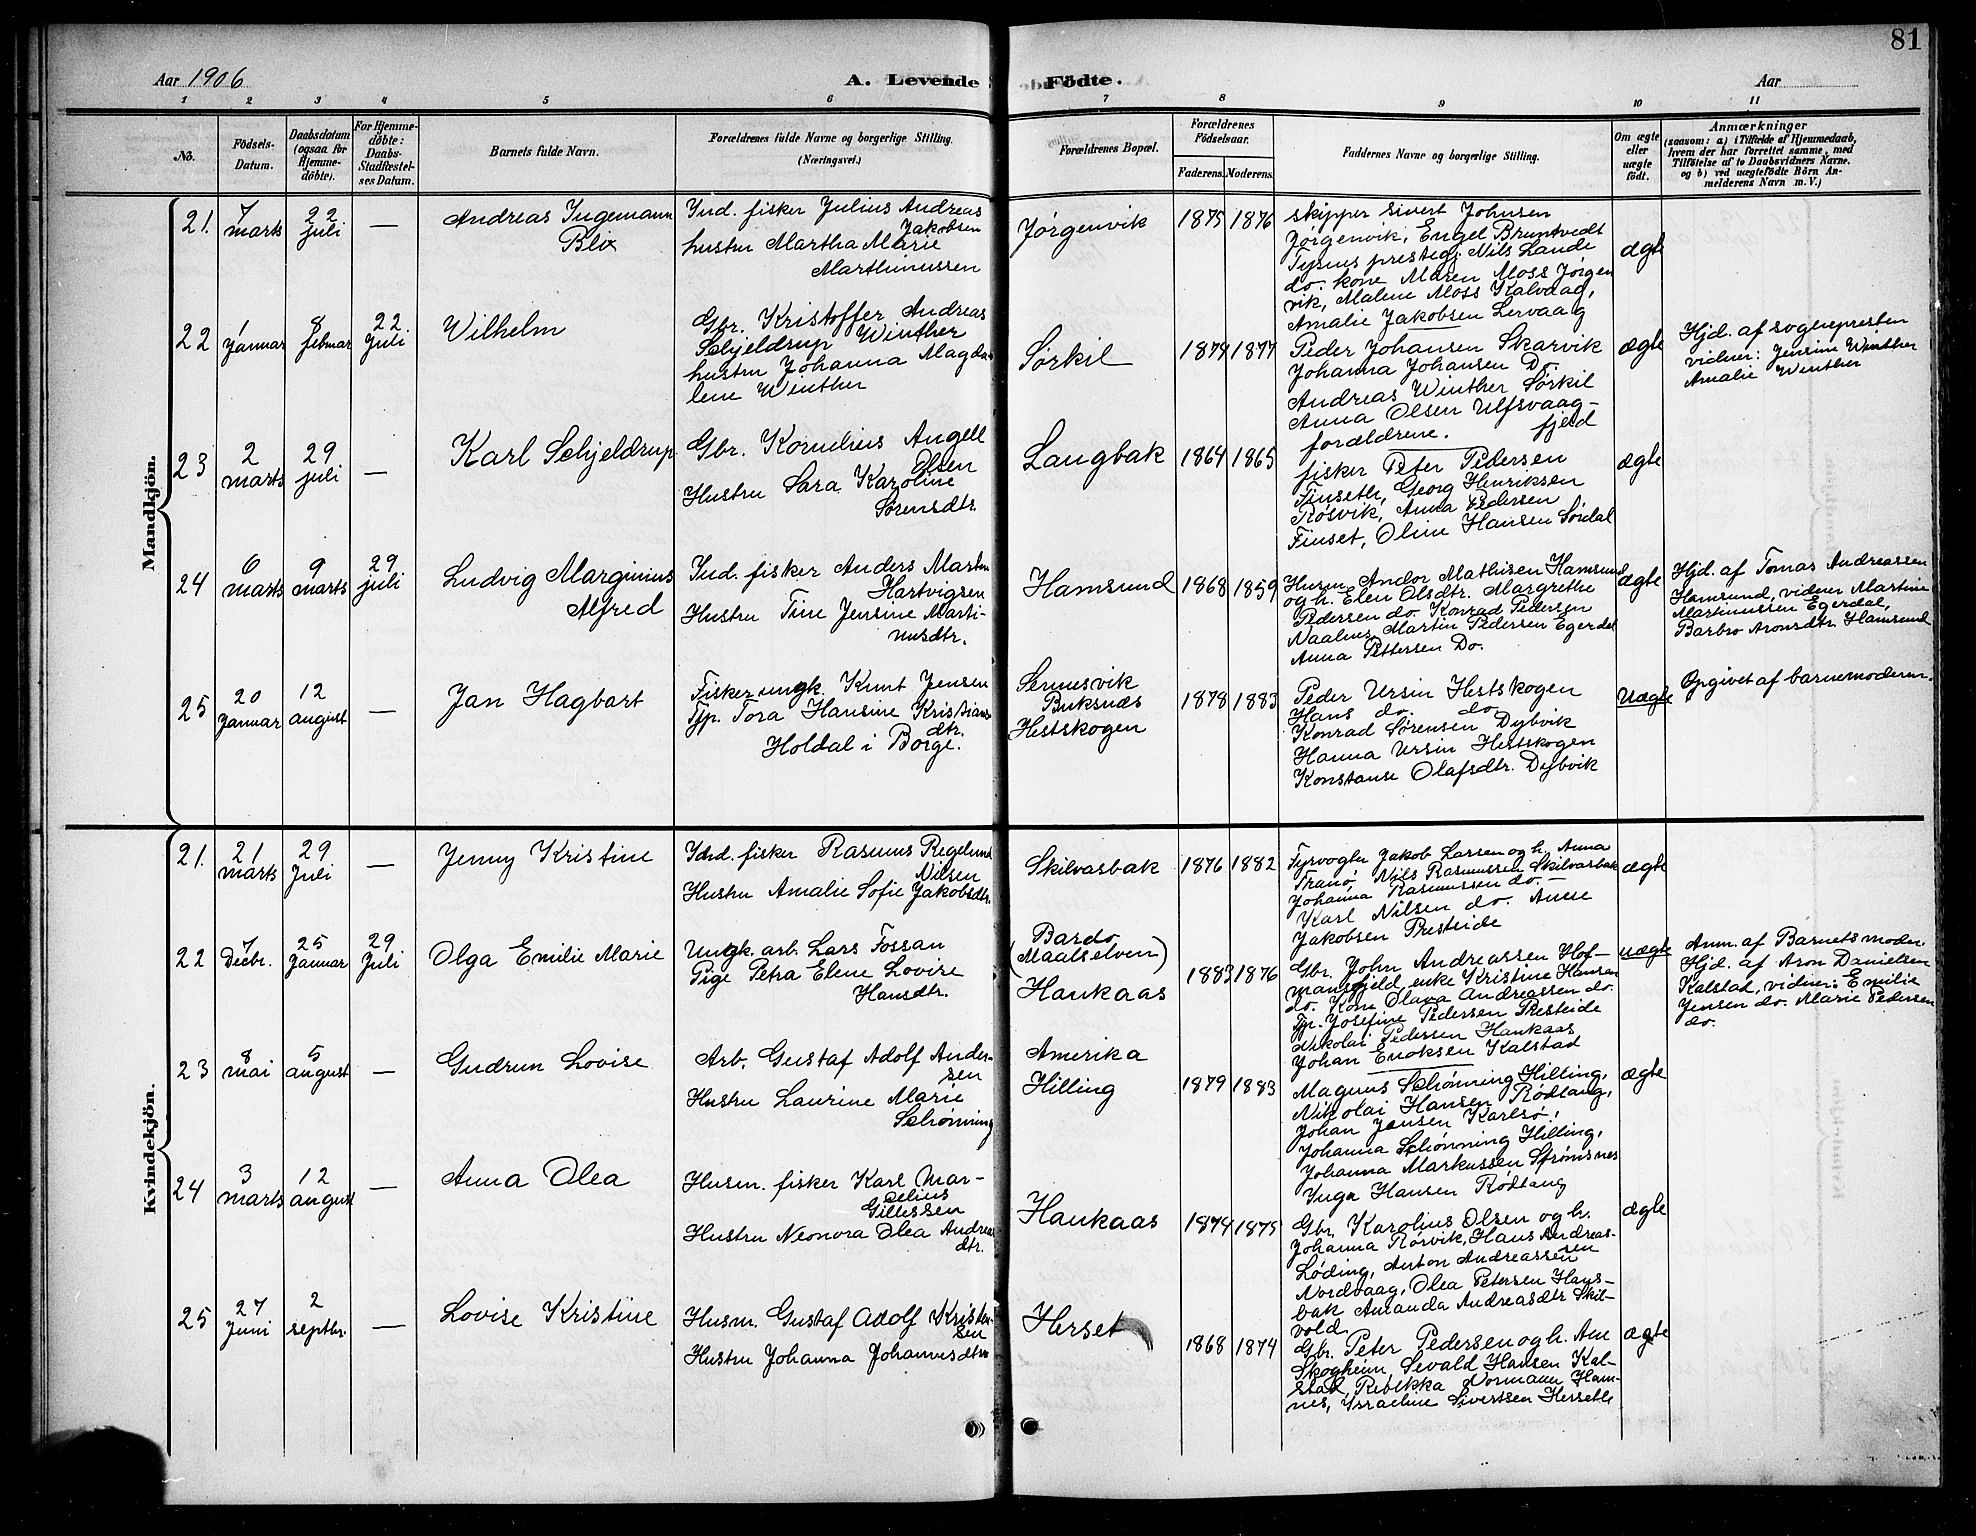 81
Aar 1906
A. Levende Födte.
Aar
1 2 3 4 5 6 7 8 9 10 11
No.
Födsels-
Datum.
Daabsdatum
(ogsaa for
Hjemme-
döbte).
For Hjemme-
döbte:
Daabs-
Stadfæstel-
ses Datum.
Barnets fulde Navn.
Forældrenes fulde Navne og borgerlige Stilling.
(Næringsvei.)
Forældrenes Bopæl.
Forældrenes
Födselsaar.
Faderens. Moderens.
Faddernes Navne og borgerlige Stilling.
Om ægte
eller
uægte
født.
Anmærkninger
(saasom: a) i Tilfælde af Hjemmedaab,
hvem der har forrettet samme, med
Tilföielse af to Daabsvidners Navne,
og b) ved uægtefödte Börn An-
melderens Navn m. V.)
Mandkjön.
21.
7
marts
22
juli
—
Andreas Ingemann
Blix
Ind. fisker Julius Andreas
Jakobsen
hustru Martha Marie
Marthinussen
Jørgenvik
1875 1876
skipper Sivert Johnsen
Jørgenvik, Engel Bruntvedt
Tysnes prestegj. Nils Lande
do. kone Maren Moss Jørgen
vik, Malene Moss Kalvaag,
Amalie Jakobsen Lervaag
ægte
22
1
Januar
8
februar
22.
juli
Wilhelm
Gbr. Kristoffer Andreas
Schjeldrup Winther
hustru Johanna Magda-
lene Winther
Sørkil
1874 1877
Peder Johansen Skarvik
Johanna Johansen Do.
Andreas Winther Sørkil
Anna Olsen Ulfsvaag-
fjeld
forældrene.
ægte
Hjd. af sognepresten
vidner: Jensine Winther
Amalie Winther
23
2
marts
29
juli
—
Karl Schjeldrup
Gbr. Kornelius Angell
Olsen
Hustru Sara Karoline
Sørensdtr.
Langbak
1864 1865
fisker Peter Pedersen
Finseth, Georg Henriksen
Røsvik, Anna Pedersen
Finset, Oline Hansen Sørdal
ægte
24
6
marts
9
marts
29
juli
Ludvig Marginius
Alfred
Ind. fisker Anders Martin
Hartvigsen
Hustru Tine Jensine Marti-
nusdtr.
Hamsund
1868 1859
Husm. Andor Mathisen Hamsund
og h. Elen Olsdtr. Margrethe
Pedersen do Konrad Pedersen
Naalnes, Martin Pedersen Egerdal
Anna Pettersen Do.
ægte
Hjd. af Tomas Andreassen
Hamsund, vidner Martine
Martinussen Egerdal,
Barbro Aronsdtr. Hamsund
25
20
Januar
12
august
—
Jan Hagbart
Fisker ungk. Knut Jensen
Tjp. Tora Hansine Kristians
dtr.
Holdal i Borge.
Sennesvik
Buksnes
Hestskogen
1878 1883
Peder Ursin Hestskogen
Hans do. do
Konrad Sørensen Dybvik
Hanna Ursin Hestskogen
Konstanse Olafsdtr. Dybvik
Uægte
Opgivet af barnemoderen.
Kvindekjön.
21.
21
marts
29
Juli
—
Jenny Kristine
Idrd. fisker Rasmus Regelund
Nilsen
Hustru Amalie Sofie Jakobsdtr.
Skilvasbak
1876 1882
Fyrvogter Jakob Larsen og h. Anna
Tranø, Nils Rasmussen Skilvasbak
Johanna Rasmussen do. —
Karl Nilsen do. Anne
Jakobsen Presteide
ægte
22
7
Decbr.
25
Januar
29
Juli
Olga Emilie Marie
Ungk. arb. Lars Fossan
Pige Petra Elene Lovise
Hansdtr.
Bardo
(Maalselven)
Haukaas
1883 1876
Gbr. John Andreassen Hof-
mansfjeld, enke Kristine Hansen
do. Kone Olava Andreassen do.
Tjp. Josefine Pedersen Presteide
Nikolai Pedersen Haukaas
Johan Enoksen Kalstad
uægte
Anm. af Barnets moder
Hjd. af Aron Danielsen
Kalstad, vidner: Emilie
Jensen do. Marie Pedersen
do.
23
8
mai
5
august
—
Gudrun Lovise
Arb. Gustaf Adolf Ander-
sen
Hustru Laurine Marie
Schønning
Amerika
Hilling
1879 1883
Magnus Schønning Hilling,
Nikolai Hansen Rødtang,
Johan Jensen Karlsø,
Johanna Schønning Hilling,
Johanna Markussen Strømsnes
Inga Hansen Rødtang
ægte
24
3
marts
12
august
—
Anna Olea
Husm. fisker Karl Mar-
selius
Gillessen
Hustru Neonora Olea Andreas
dtr.
Haukaas
1874 1875
Gbr. Karolius Olsen og h.
Johanna Rørvik, Hans Andreas-
sen
Løding, Anton Andreassen
Nordvaag, Olea Petersen Hans-
bak Amanda Andreasdtr Skil-
vold
ægte
25
27
Juni
2
septbr.
—
Lovise Kristine
Husm. Gustaf Adolf Kristen-
sen
Hustru Johanna Johannesdtr
Herset
1868 1874
Gbr. Peter Pedersen og h. Ane
Skogheim Sevald Hansen Kal-
stad, Rebekka Normann Ham-
nes, Israeline Sivertsen Hersetle
ægte